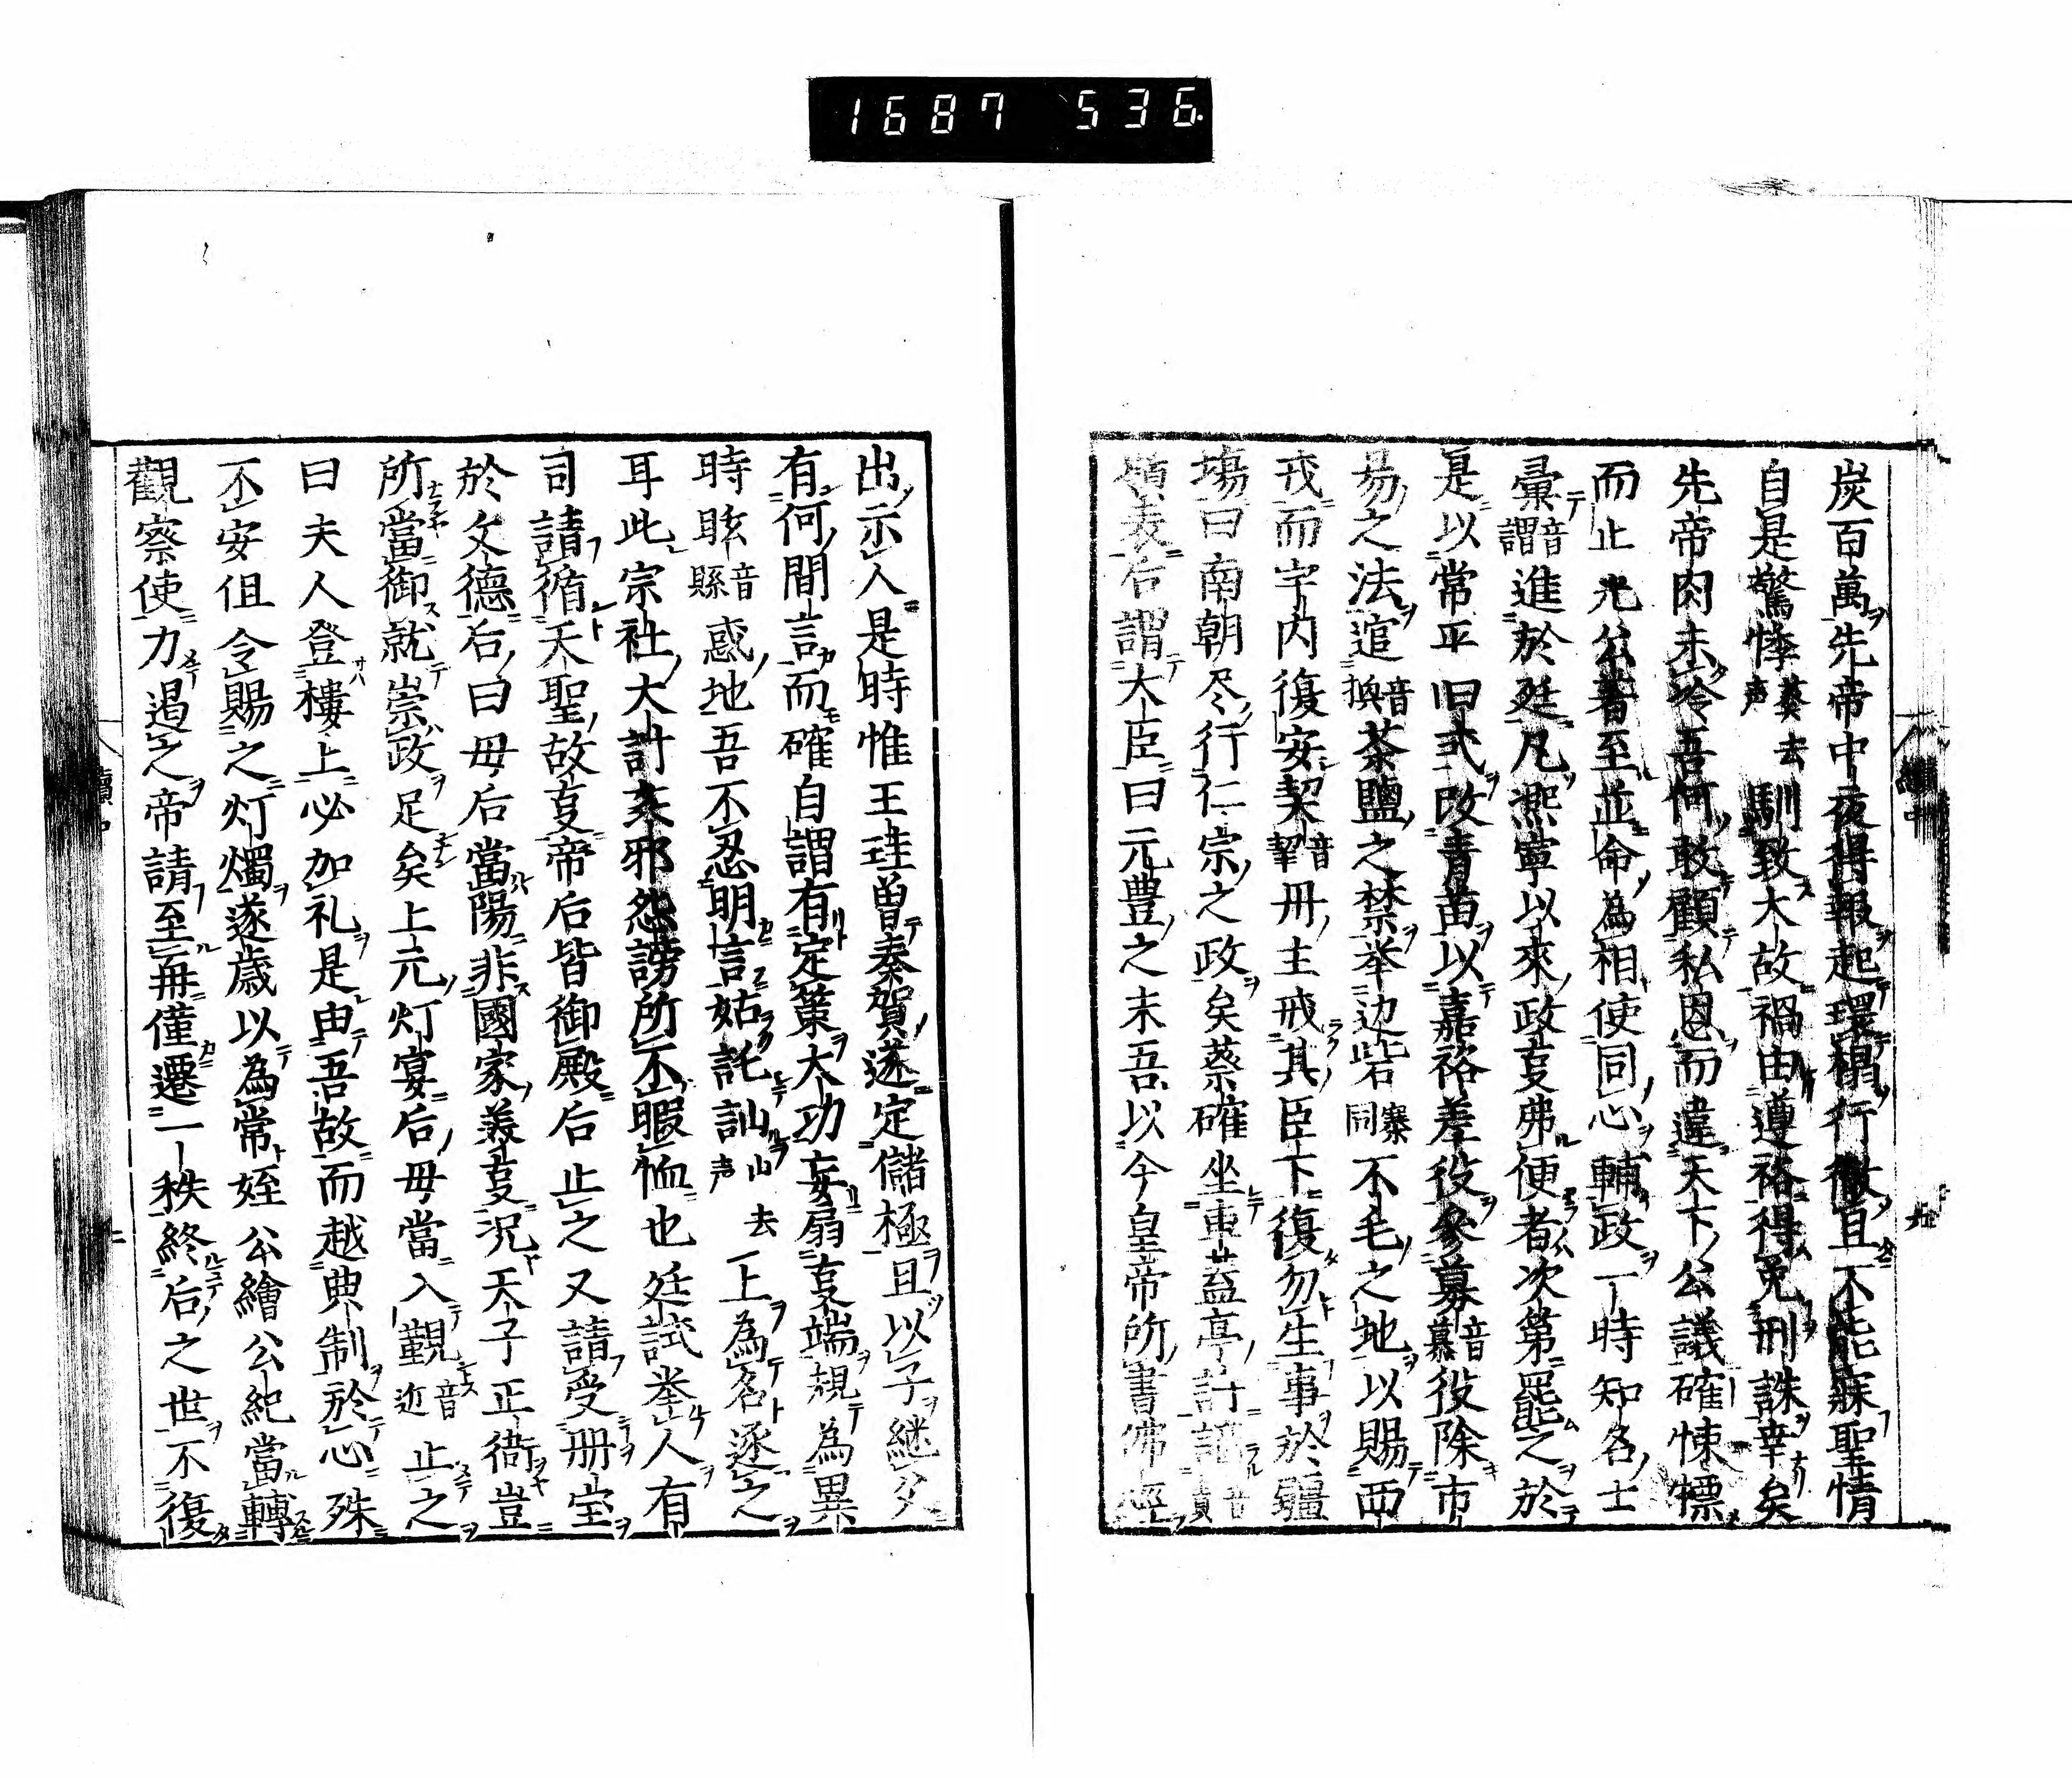 1687 536
炭百萬先帝中夜得報起環榻行徹旦不能寐聖情
自是驚悸葵去声馴致大故禍由遵裕得免刑誅幸矣
先帝肉未冷吾何敢顧私恩而違天下公議確悚慄
而止光公著至並命為相使同心輔政一時知名士
彙音謂進於廷凡熙寧以來政叓弗便者次第罷之於
是以常平旧弍改青苗以嘉祐差役參募音慕役除市
易之法逭音換茶鹽之禁举边砦寨同不毛之地以賜西
戎而宇内復安契音挈丹主戒其臣下復勿生事於疆
塲曰南朝尽行仁宗之政矣蔡確坐車盖亭計謫
嶺表后謂大臣曰元豊之末吾以今皇帝所書佛經
續中
九
出示人是時惟王珪曽奏賀遂定儲極且以子継父
有何間言而確自謂有定策大功妄扇叓端規為異
時眩音縣惑地吾不忍明言姑託訕山去声上為名逐之
耳此宗社大計奸邪怨謗所不暇恤也廷試举人有
司請循天聖故叓帝后皆御殿后止之又請受冊宝
於文德后曰母后當陽非國家美叓況天子正衙豈
所當御就崇政足矣上元灯宴后母當入觀音近止之
曰夫人登樓上必加礼是由吾故而越典制於心殊
不安但令賜之灯燭遂歳以為常姪公繪公紀當轉
觀察使力遏之帝請至再僅遷一秩終后之世不復
續中